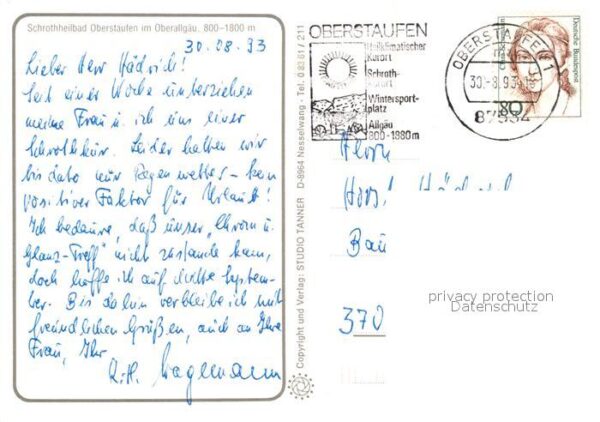 Schrothheilbad Oberstaufen im Oberallgäu, 800-1800 m
30.08.93
Lieber Herr Hädrich!
Seit einer Woche unterziehen
meine Frau u. ich uns einer
Schrothkur. Leider hatten wir
bis dato nur Regenwetter - kein
positiver Faktor für Urlaub!
Ich bedaure, daß unser "Chrom u.
Glanz-Treff" nicht zustande kam,
doch hoffe ich auf Mitte Septem-
ber. Bis dahin verbleibe ich mit
freundlichen Grüßen, auch an Ihre
Frau, Ihr
Hagemann
Copyright und Verlag: STUDIO TANNER D-8964 Nesselwang · Tel. 0 83 61 / 211
OBERSTAUFEN
Heilklimatischer
Kurort
Schroth-
kurort
Wintersport-
platz
Allgäu
800-1880m
OBERSTAUFEN 1
30.-8.93
87534
Deutsche Bundespost
80
Herrn
Horst Hädrich
Bau
370
privacy protection
Datenschutz